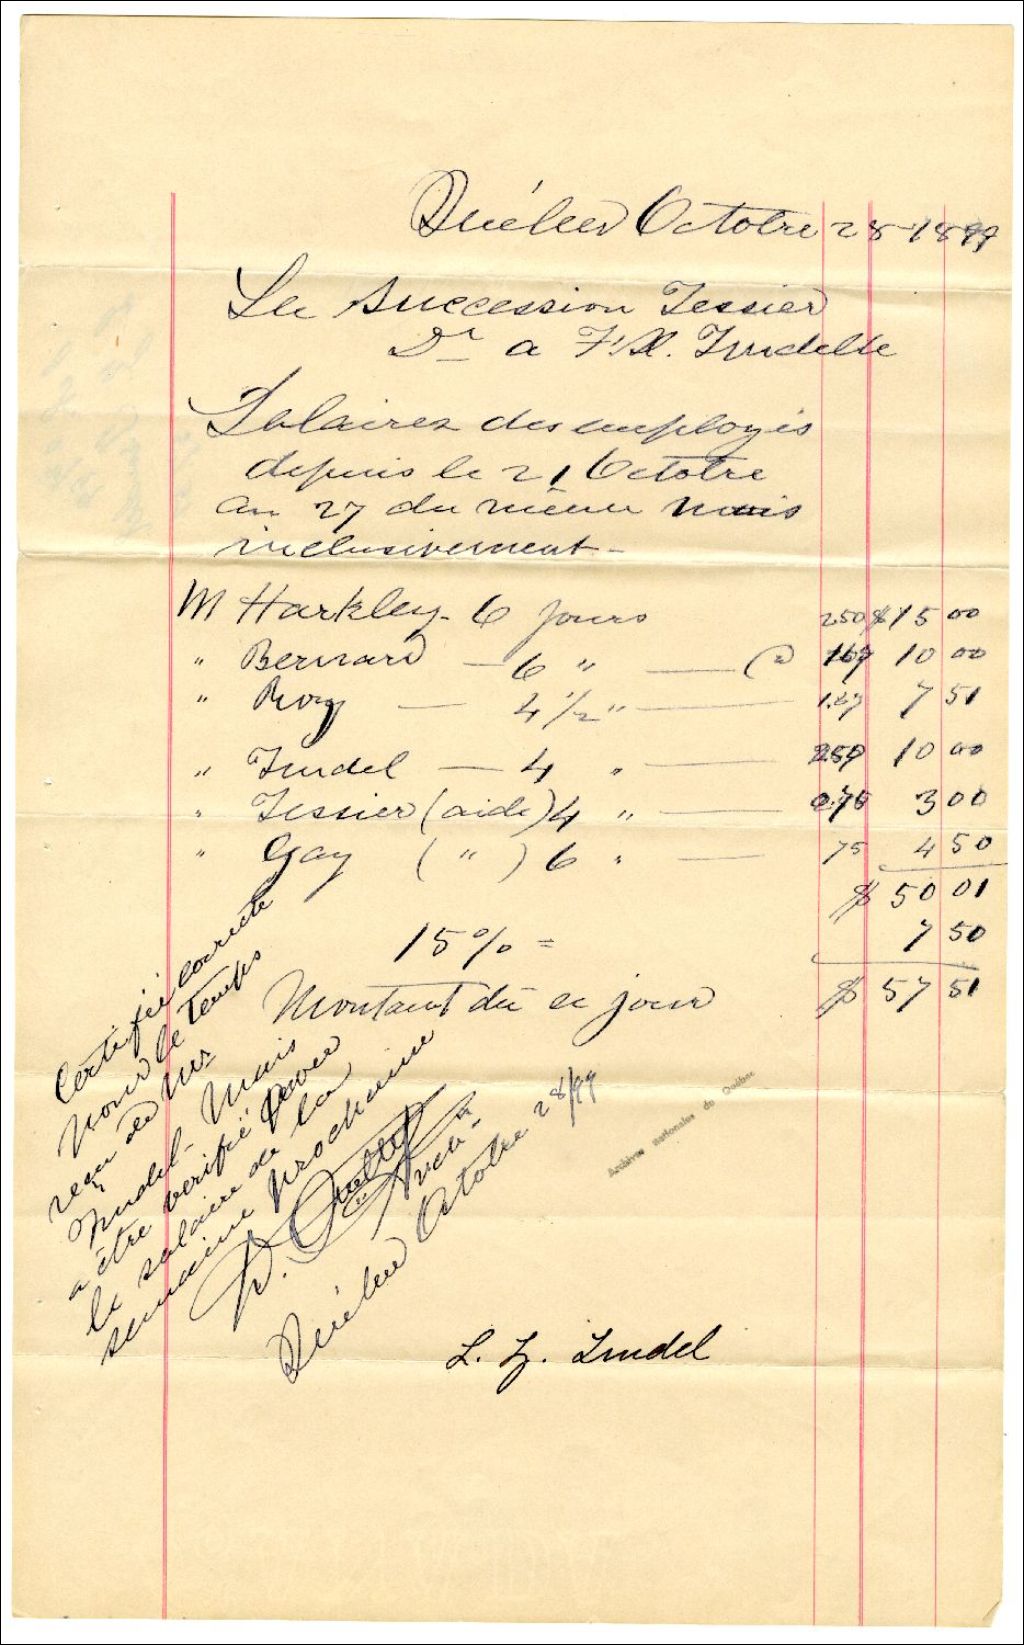 Québec Octobre 28-1899
La Succession Tessier
Dr a F.X. Trudelle
Salaires des employés
depuis le 21 Octobre
au 27 du même mois
inclusivement-
M Harkley- 6 jours 250 $ 15 00
" Bernard — 6 " — @ 167 10 00
" Roy — 4 1/2 " — 1.67 7 51
" Trudel — 4 " — 250 10 00
" Tessier (aide) 4 " — 0.75 3 00
" Gay ( " ) 6 " — 75 4 50
$ 50 01
15 % = 7 50
Montant dû ce jour $ 57 51
Certifié correcte
pour le temps
reçu de Mr
Trudel- Mais
a être vérifié avec
le salaire de la
semaine prochaine
D. Ouellet
Arch-
Québec Octobre 28/99
Archives Nationales du Québec
L. Z. Trudel